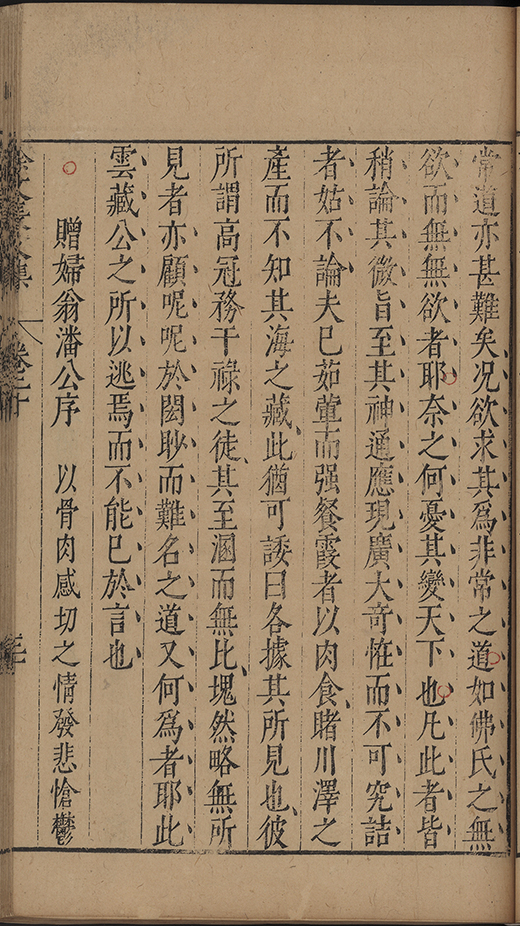 常道亦甚難矣况欲求其爲非常之道如佛氏之無
欲而無無欲者耶奈之何憂其變天下也凡此者皆
稍論其微旨至其神通應現廣大奇恠而不可究詰
者姑不論夫巳茹葷而强餐霞者以肉食賭川澤之
產而不知其海之藏此猶可諉曰各據其所見也彼
所謂高冠務干祿之徒其至溷而無比塊然略無所
見者亦顧呢呢於閎眇而難名之道又何爲者耶此
雲藏公之所以逃焉而不能巳於言也
贈婦翁潘公序 以骨肉感切之情發悲愴鬱
卷之十